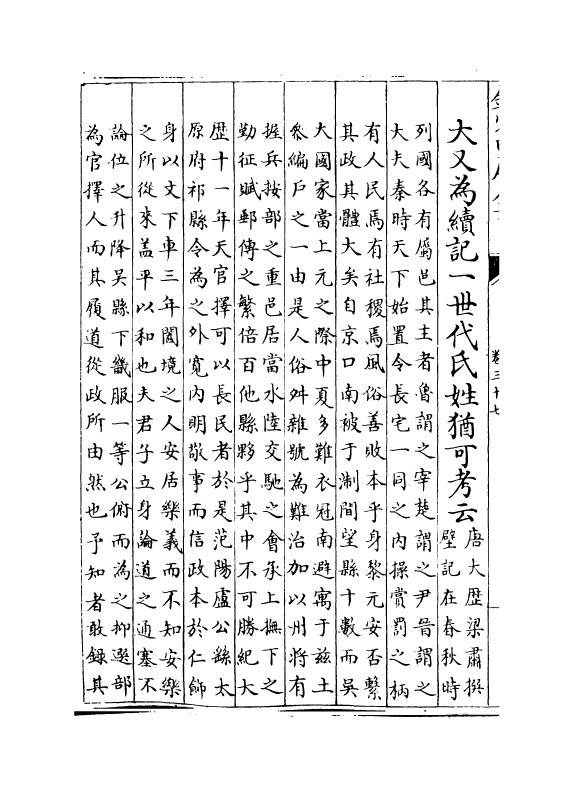 卷三十七
大又為續記一世代氏姓猶可考云
唐大歴梁肅撰
壁記在春秋時
列國各有屬邑其主者魯謂之宰楚謂之尹晉謂之
大夫秦時天下始置令長宅一同之内操賞罰之柄
有人民焉有社稷焉風俗善敗本乎身黎元安否繫
其政其體大矣自京口南被于淛間望縣十數而吳
大國家當上元之際中夏多難衣冠南避寓于兹土
叅編戶之一由是人俗舛雜號為難治加以州將有
握兵按部之重邑居當水陸交馳之會承上撫下之
勤征賦郵傳之繁倍百他縣夥乎其中不可勝紀大
歴十一年天官擇可以長民者於是范陽盧公繇太
原府祁縣令為之外寛内明敬事而信政本於仁飾
身以文下車三年闔境之人安居樂義而不知安樂
之所從來盖平以和也夫君子立身論道之通塞不
論位之升降吳縣下畿服一等公俯而為之抑選部
為官擇人而其履道從政所由然也予知者敢錄其